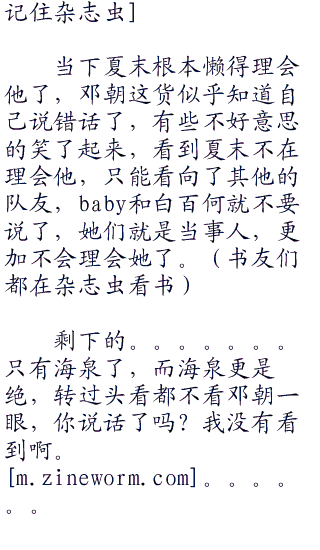 记住杂志虫]
当下夏末根本懒得理会
他了，邓朝这货似乎知道自
己说错话了，有些不好意思
的笑了起来，看到夏末不在
理会他，只能看向了其他的
队友，baby和白百何就不要
说了，她们就是当事人，更
加不会理会她了。（书友们
都在杂志虫看书）
剩下的。。。。。。。
只有海泉了，而海泉更是
绝，转过头看都不看邓朝一
眼，你说话了吗？我没有看
到啊。
[m.zineworm.com]。。。。
。。